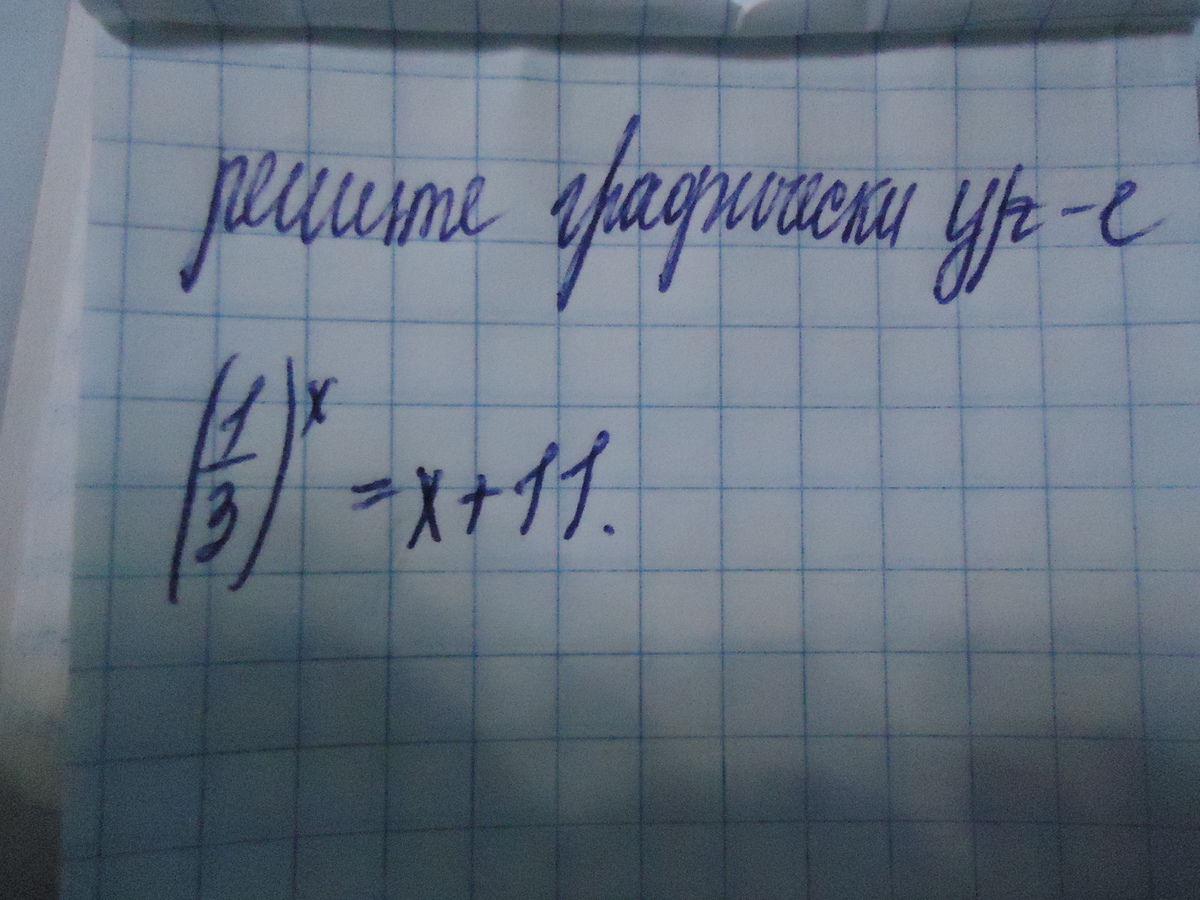 решите графически ур-е
(1/3)^x = x + 11.